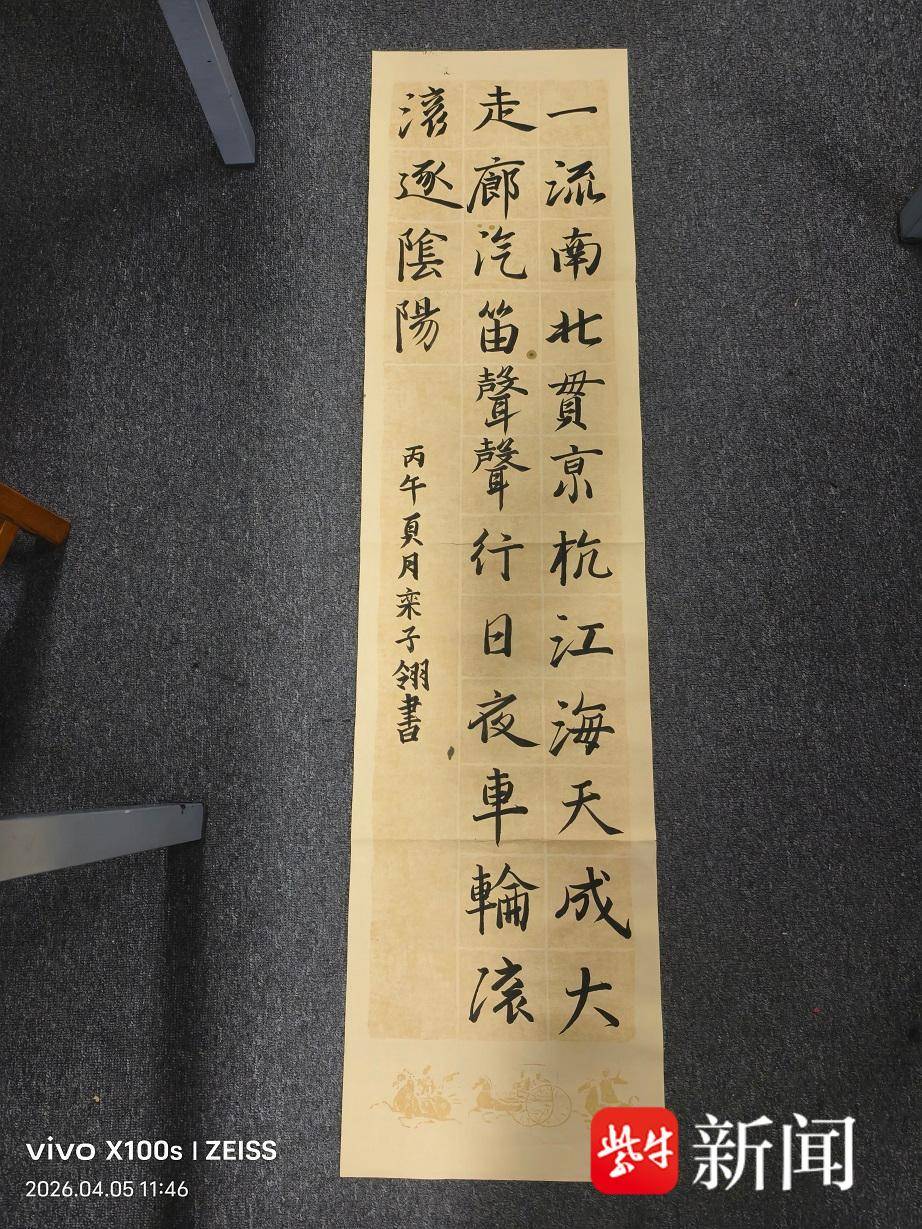 一流南北貫亰杭江海天成大
走廊汽笛聲聲行日夜車輪滚
滚逐陰陽
丙午夏月栾子翎書
vivo X100s | ZEISS
2026.04.05 11:46
紫牛新闻